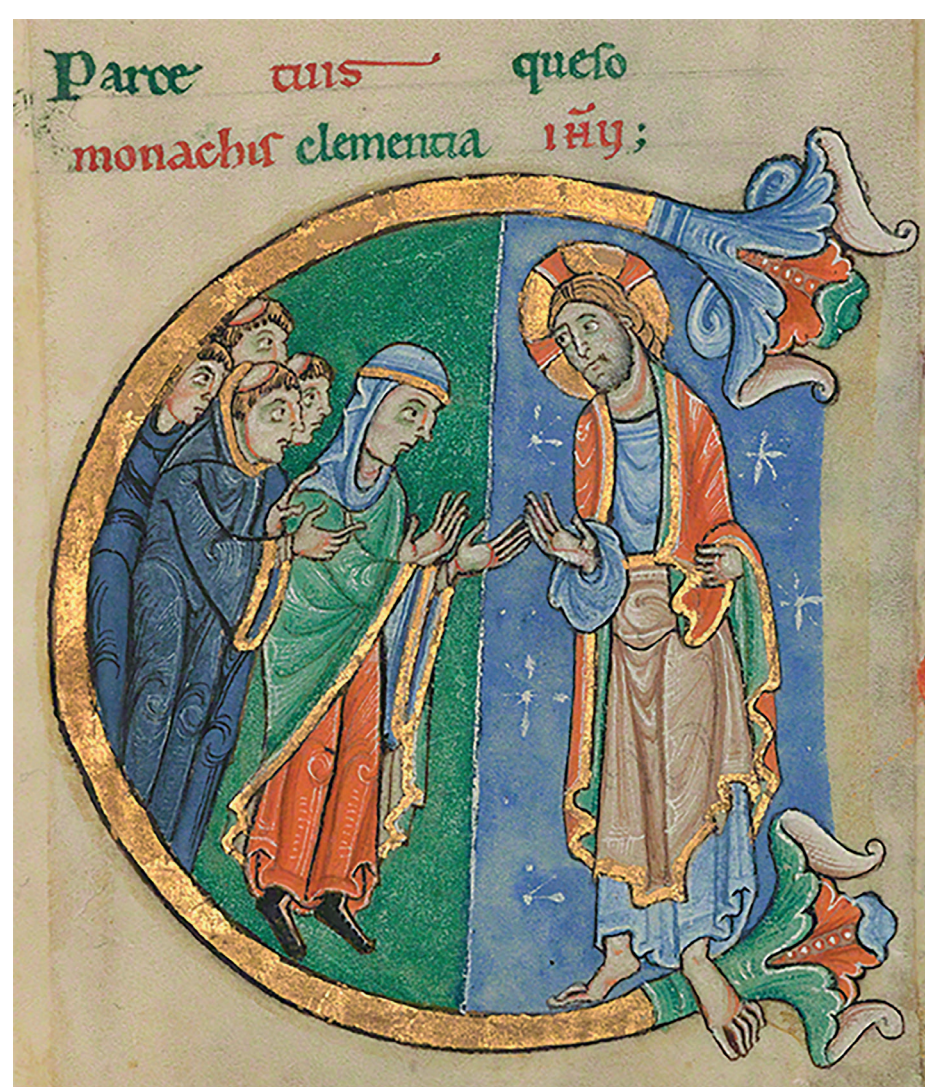 Parce tuis queso
monachis clementia iħu ;